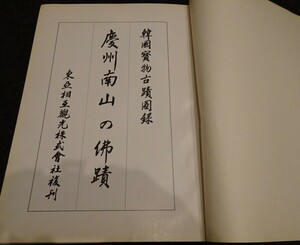 韓國寶物古蹟圖錄
慶州南山の佛蹟
東亞相互觀光株式會社複刊